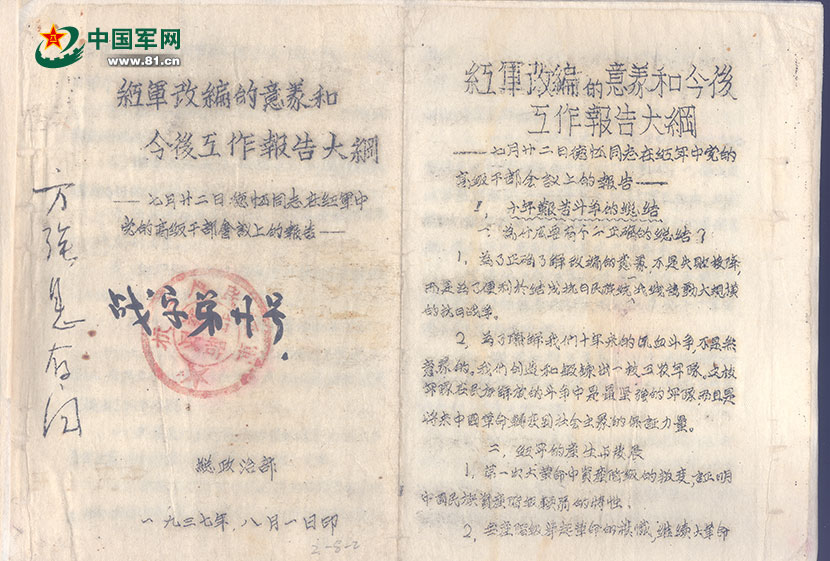 中国军网
www.81.cn
紅軍改編的意義和
今後工作報告大綱
——七月廿二日德怀同志在紅軍中
党的高級干部會議上的報告——
战字第廿号
总政治部
一九三七年，八月一日印
2-8-2
紅軍改編的意義和今後
工作報告大綱
——七月廿二日德怀同志在紅軍中党的
高級干部会議上的報告——
1，十年艱苦斗爭的总結
一、為什么要有个正確的总結？
1、為了正确了解改編的意義，不是失敗投降，
而是為了便利於結成抗日民族統一战线發動大規模
的抗日战争。
2、為了了解我們十年来的流血斗爭，不是無
意義的。我們創造和鍛鍊出一枝工农军隊。這枝
军隊在民族解放的斗争中是最堅強的军隊而且是
將来中国革命轉变到社会主義的保証力量。
二、紅军的產生与發展
1、第一次大革命中資產階級的叛变，証明
中国民族資產階級的特性。
2、無產階級举起革命的旗幟，继续大革命